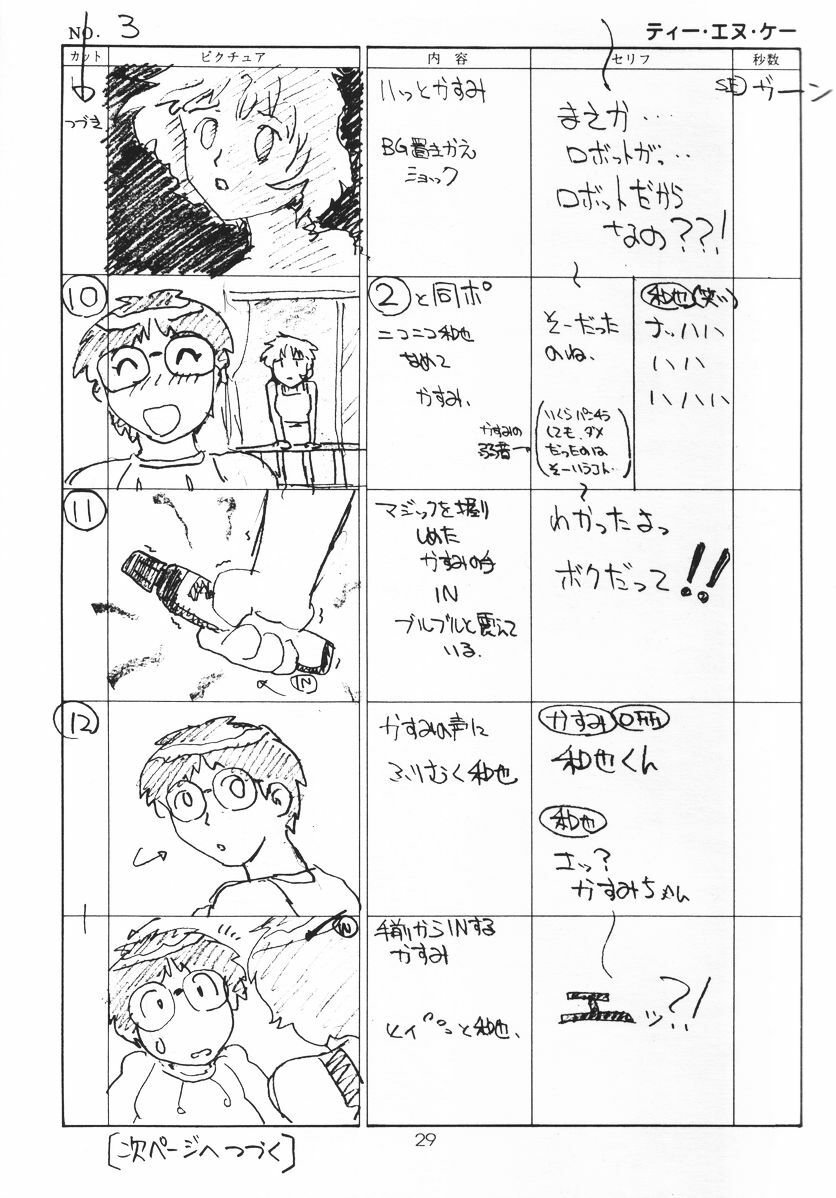 NO. 3
ティー・エヌ・ケー
カット
ピクチュア
内容
セリフ
秒数
つづき
ハッとかすみ
BG置きかえ
ショック
まえか・・
ロボットが・・・
ロボットだから
なの??!
SE ガーン
10
②と同ポ
ニコニコ和也
なめて
かすみ、
そーだった
のね、
かすみの
和也(笑い)
ハハ
ハハハ
いくらパンチラ
しても、ダメ
だったのは
そーいうコト…
11
マジックを握り
しめた
かすみの手
IN
ブルブルと震えて
いる.
わかったよっ
ボクだって!!
IN
12
かすみの声に
ふりむく和也
かすみ
和也くん
和也
えッ?
かすみちゃん
IN
手前からINする
かすみ
と和也、
エッ?!
[次ページへつづく]
29